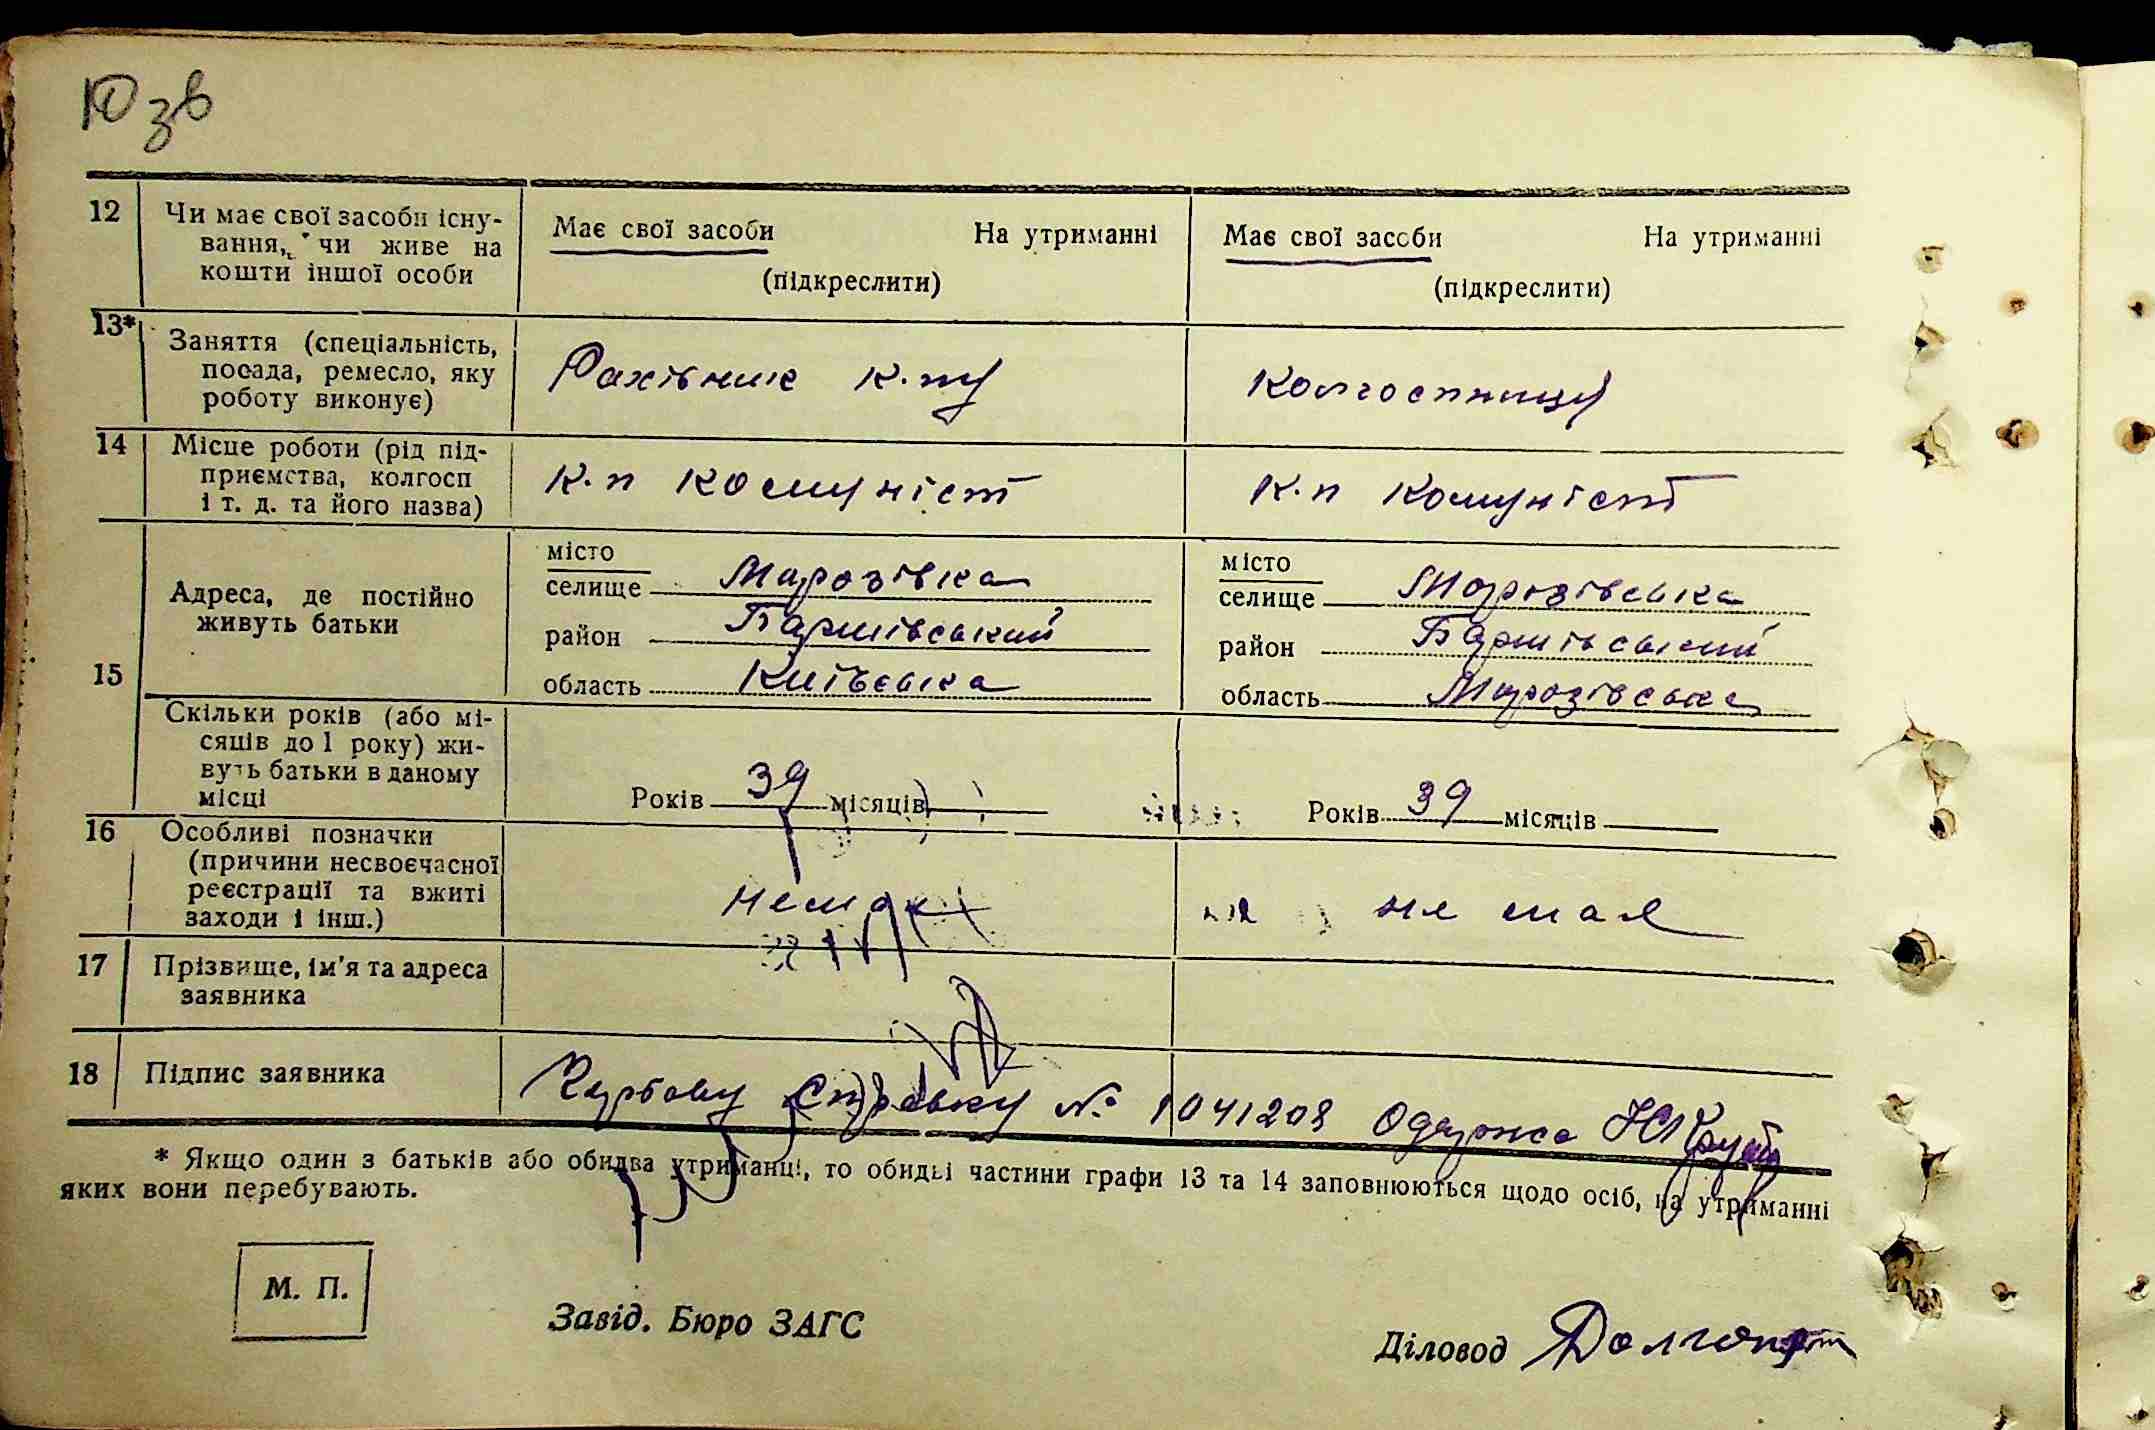 Ю зв
12 Чи має свої засоби існу- Має свої засоби На утриманні Має свої засоби На утриманні
вання, чи живе на
кошти іншої особи (підкреслити) (підкреслити)
13* Заняття (спеціальність,
посада, ремесло, яку Рахівник к. Колгоспниця
роботу виконує)
14 Місце роботи (рід під-
приємства, колгосп К.п Комуніст К.п Комуніст
і т. д. та його назва)
15 Адреса, де постійно
живуть батьки
місто місто
селище Марозівка селище Морозівська
район Баришівський район Баришівський
область Київська область Морозівська
Скільки років (або мі-
сяців до 1 року) жи-
вуть батьки в даному
місці Років 39 місяців Років 39 місяців
16 Особливі позначки
(причини несвоєчасної
реєстрації та вжиті немає не має
заходи і інш.)
17 Прізвище, ім'я та адреса
заявника
18 Підпис заявника справку № 1041208 Одержав
* Якщо один з батьків або обидва утриманці, то обидві частини графи 13 та 14 заповнюються щодо осіб, на утриманні
яких вони перебувають.
М. П.
Завід. Бюро ЗАГС
Діловод